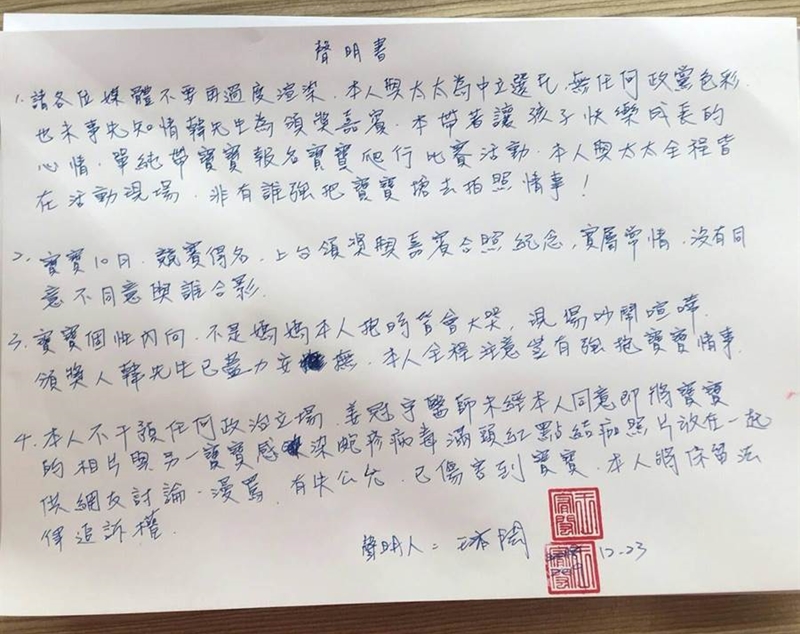 聲明書
1. 請各位媒體不要再過度渲染. 本人與太太為中立選民, 無任何政黨色彩.
也未事先知情韓先生為頒獎嘉賓. 本帶著讓孩子快樂成長的
心情. 單純帶寶寶報名寶寶爬行比賽活動. 本人與太太全程皆
在活動現場. 非有誰強把寶寶搶去拍照情事!
2. 寶寶10月. 競賽得名. 上台領獎與嘉賓合照紀念, 實屬常情. 沒有同
意不同意與誰合影.
3. 寶寶個性內向. 不是媽媽本人抱時皆會大哭, 現場吵鬧喧嘩.
頒獎人韓先生已盡力安撫. 本人全程注意豈有強抱寶寶情事.
4. 本人不干預任何政治立場. 姜冠宇醫師未經本人同意即將寶寶
的相片與另一寶寶感染皰疹病毒滿頭紅點結痂照片放在一起
供網友討論. 漫罵. 有失公允. 已傷害到寶寶. 本人將保留法
律追訴權.
聲明人: 12.23